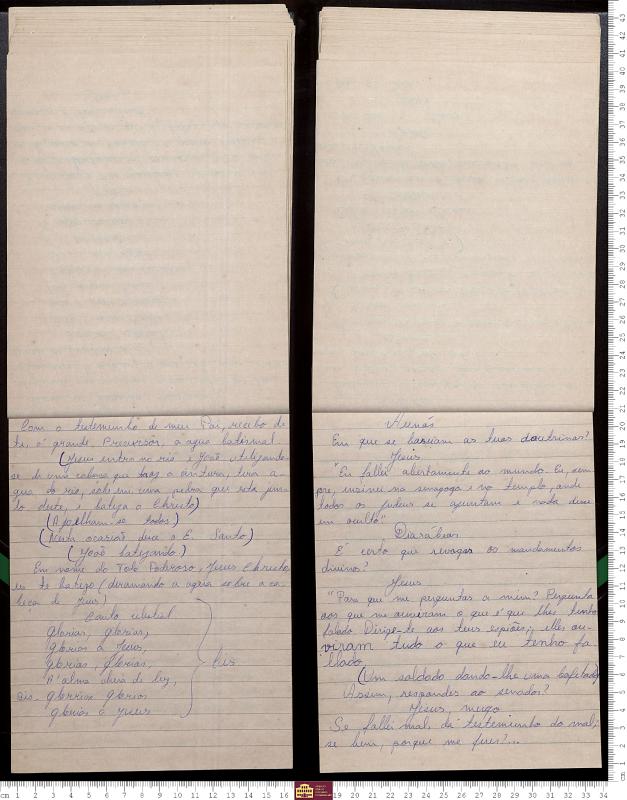 Com o testemunho de meu Pai, recebo de
ti, ó grande Precursor, a agua batismal.
(Jesus entra no rio e João utilizando-
se de uma cabaça que traz a cintura, tira a-
gua do rio, sobe em uma pedra que está jun-
to deste, e batiza o Christo)
(Ajoelham-se todos)
(Nesta ocasião desce o E. Santo)
(João batizando.)
Em nome do Todo Poderoso, Jesus Christo
eu te batizo (derramando a agua sobre a ca-
beça de Jesus)
Canto celestial
Glorias, glorias,
glorias a Jesus,
glorias, glorias,
A' alma cheia de luz,
Bis - glorias glorias
glorias a Jesus
bis
Em que se baseiam as tuas doutrinas?
Jesus
"Eu fallei abertamente ao mundo. Eu, sem-
pre, ensinei na sinagoga e no templo, onde
todos os judeus se ajuntam e nada disse
em oculto."
E' certo que revogas os mandamentos
divinos?
Jesus
"Para que me perguntas a mim? Pergunta
aos que me ouviram o que é que lhes tenho
falado Dirige-te aos teus espiões; elles ou-
viram tudo o que eu tenho fa-
llado
(Um soldado dando-lhe uma bofetada)
Assim, respondes ao senador?
Jesus, meigo
Se fallei mal, dá testemunho do mal;
se bem, porque me feres?...